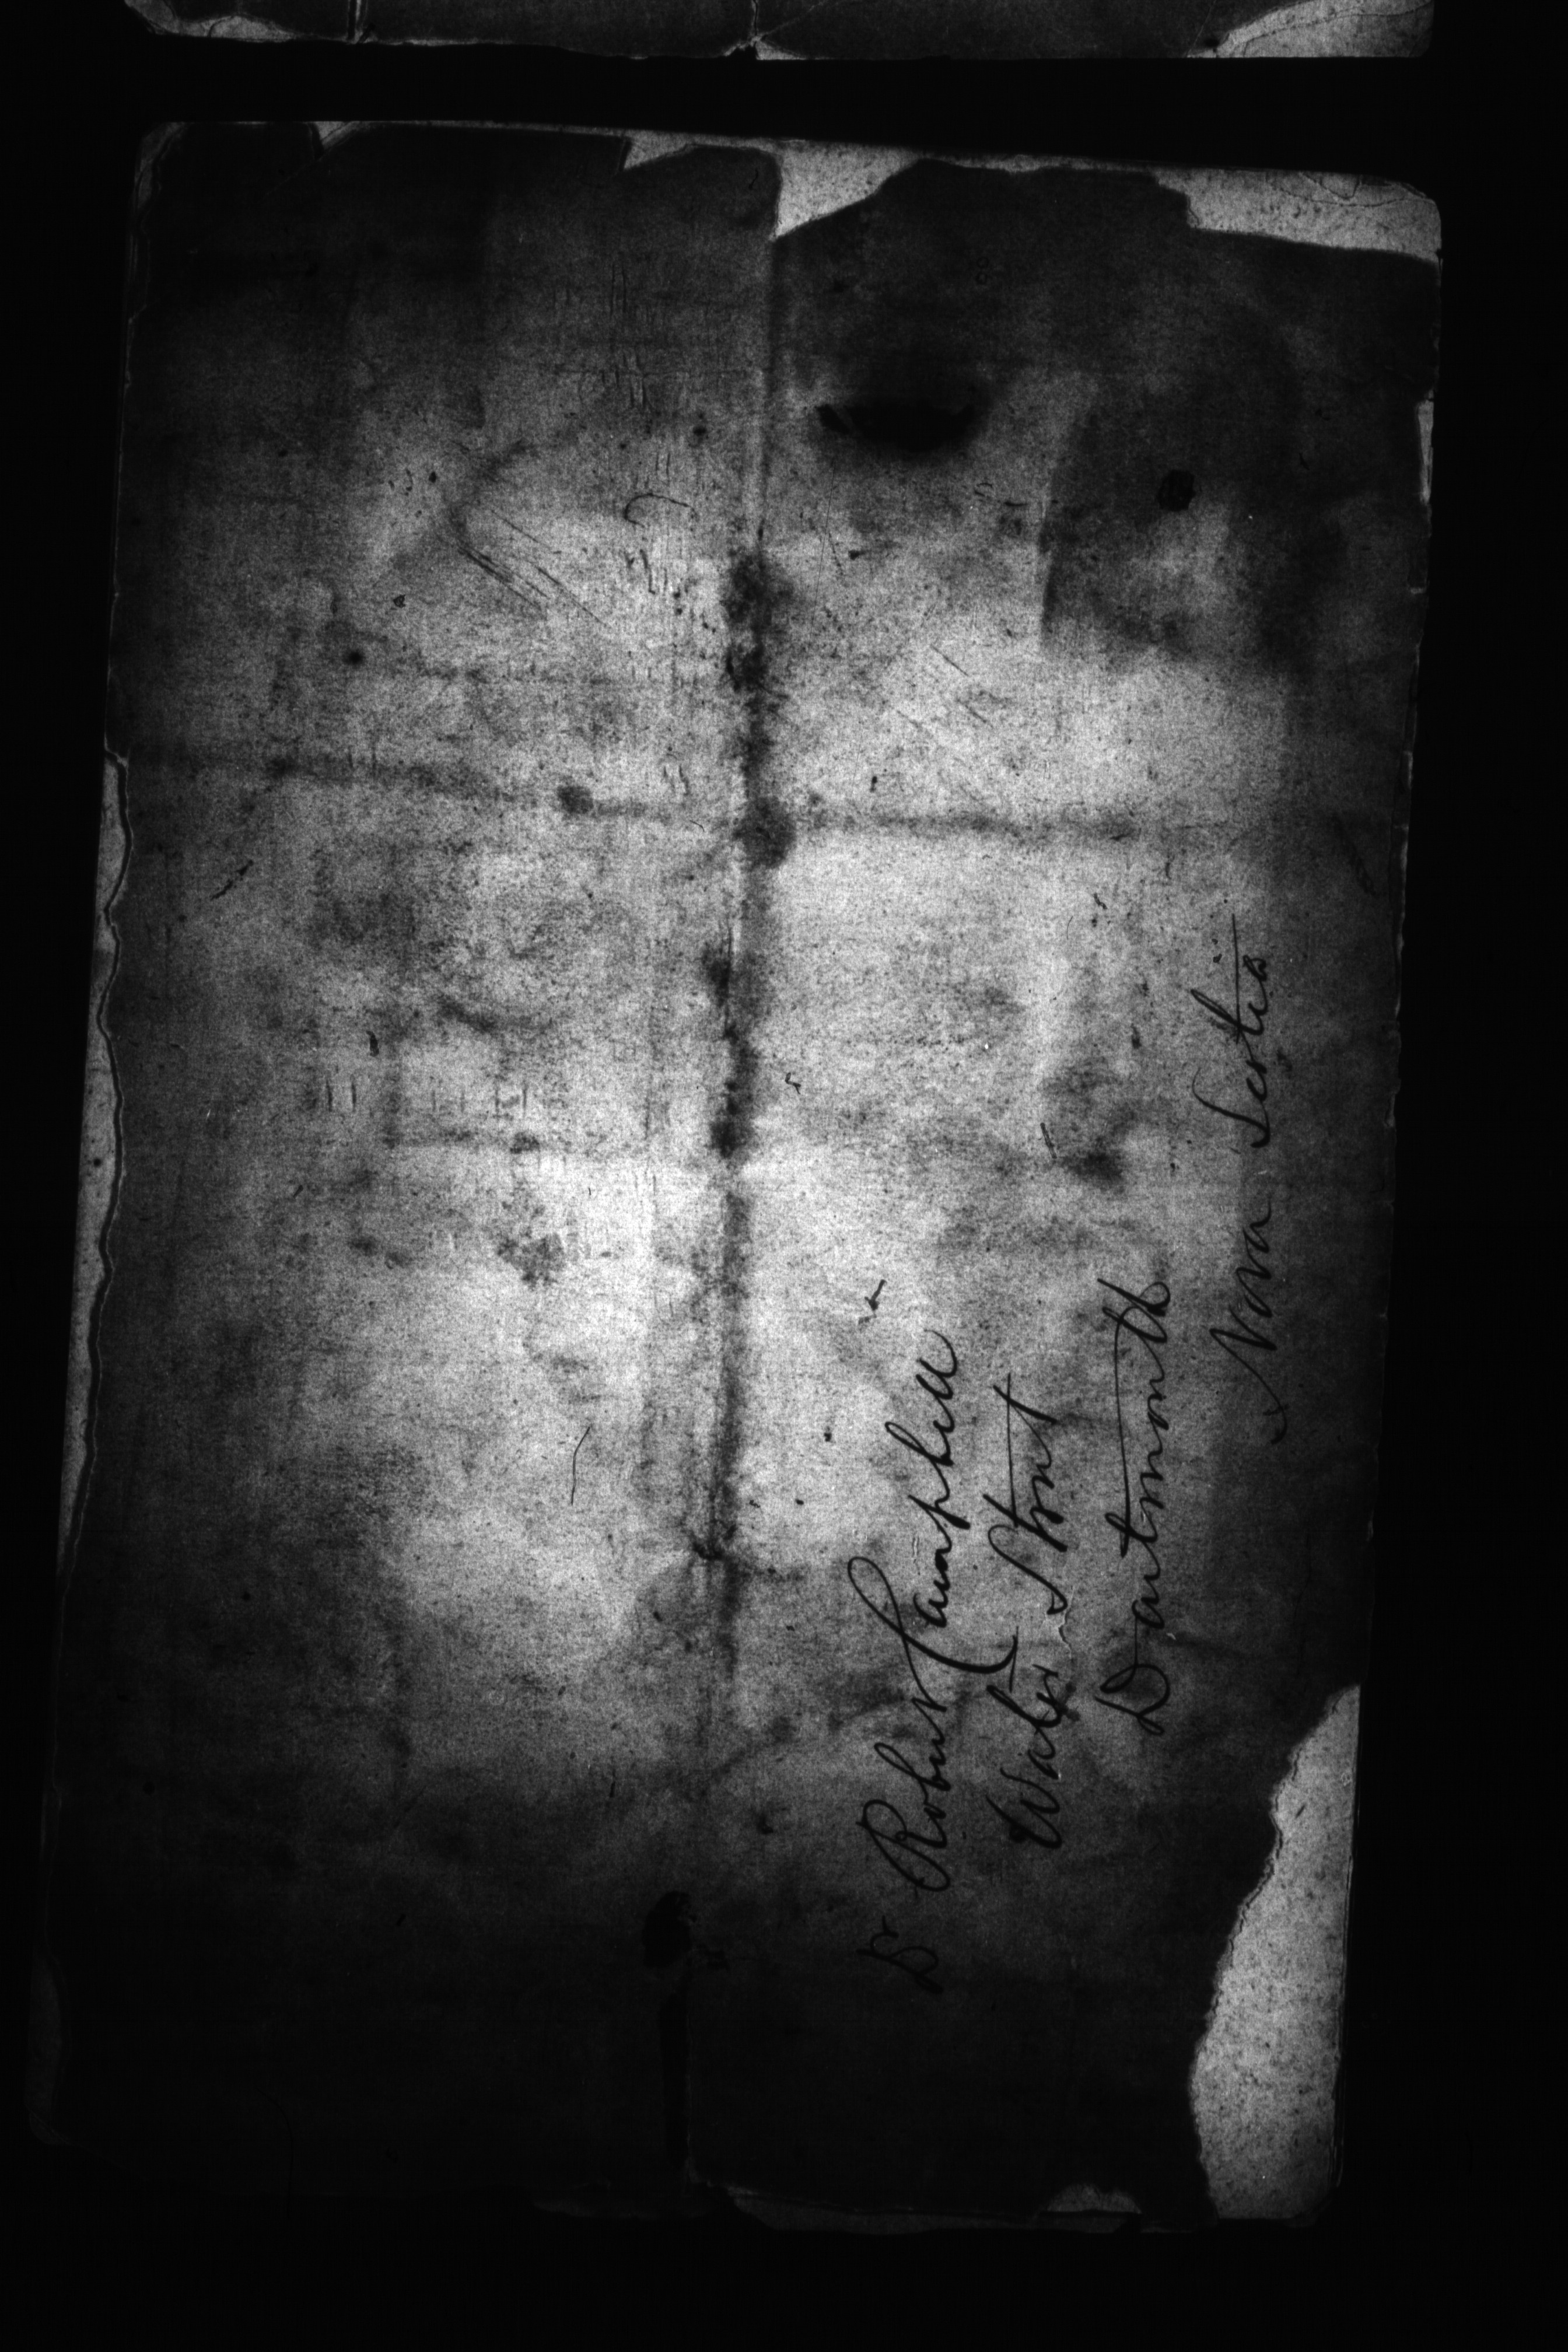 Dr Robert Campbell
Water Street
Dartmouth
Nova Scotia